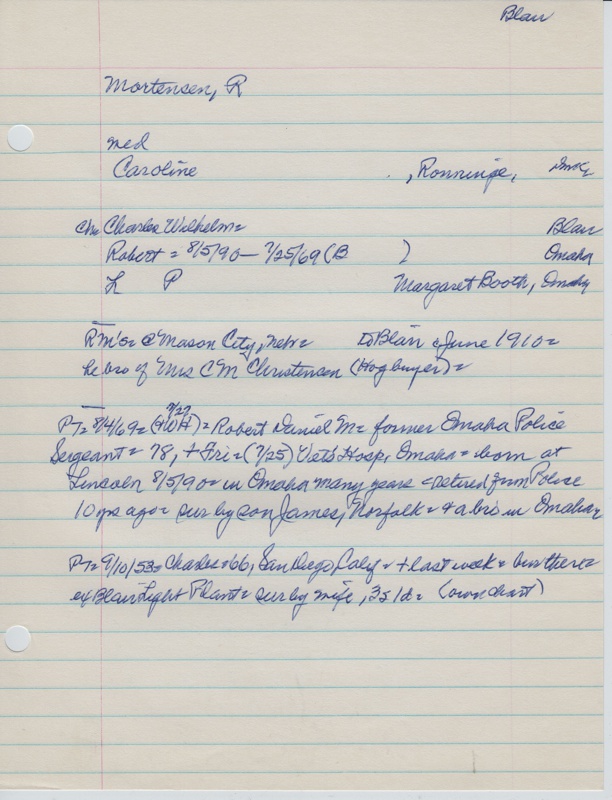 Blair
Mortensen, R
med
Caroline , Ronninge,
Ch= Charles Wilhelm= Blair
Robert = 8/5/90 — 7/25/69 (B ) Omaha
L P Margaret Booth, Omaha
R M's= @ Mason City, Neb= to Blair c June 1910=
he bro of Mrs C M Christensen (Hogbuyer)=
PT= 8/4/69= (7/27 OWH)= Robert Daniel M= former Omaha Police
Sergeant= 78, + Fri= (7/25) Vets Hosp, Omaha= born at
Lincoln 8/5/90= in Omaha many years = retired from Police
10 yrs ago= sur by son James, Norfolk= & a bro in Omaha=
PT= 9/10/53= Charles= 66, San Diego Calif= + last week= bur there=
ex Blair Light Plant= sur by wife, 3s/d= (own chart)